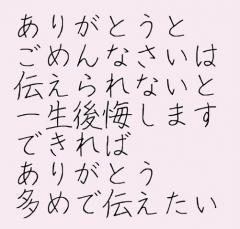 ありがとうと
ごめんなさいは
伝えられないと
一生後悔します
できれば
ありがとう
多めで伝えたい